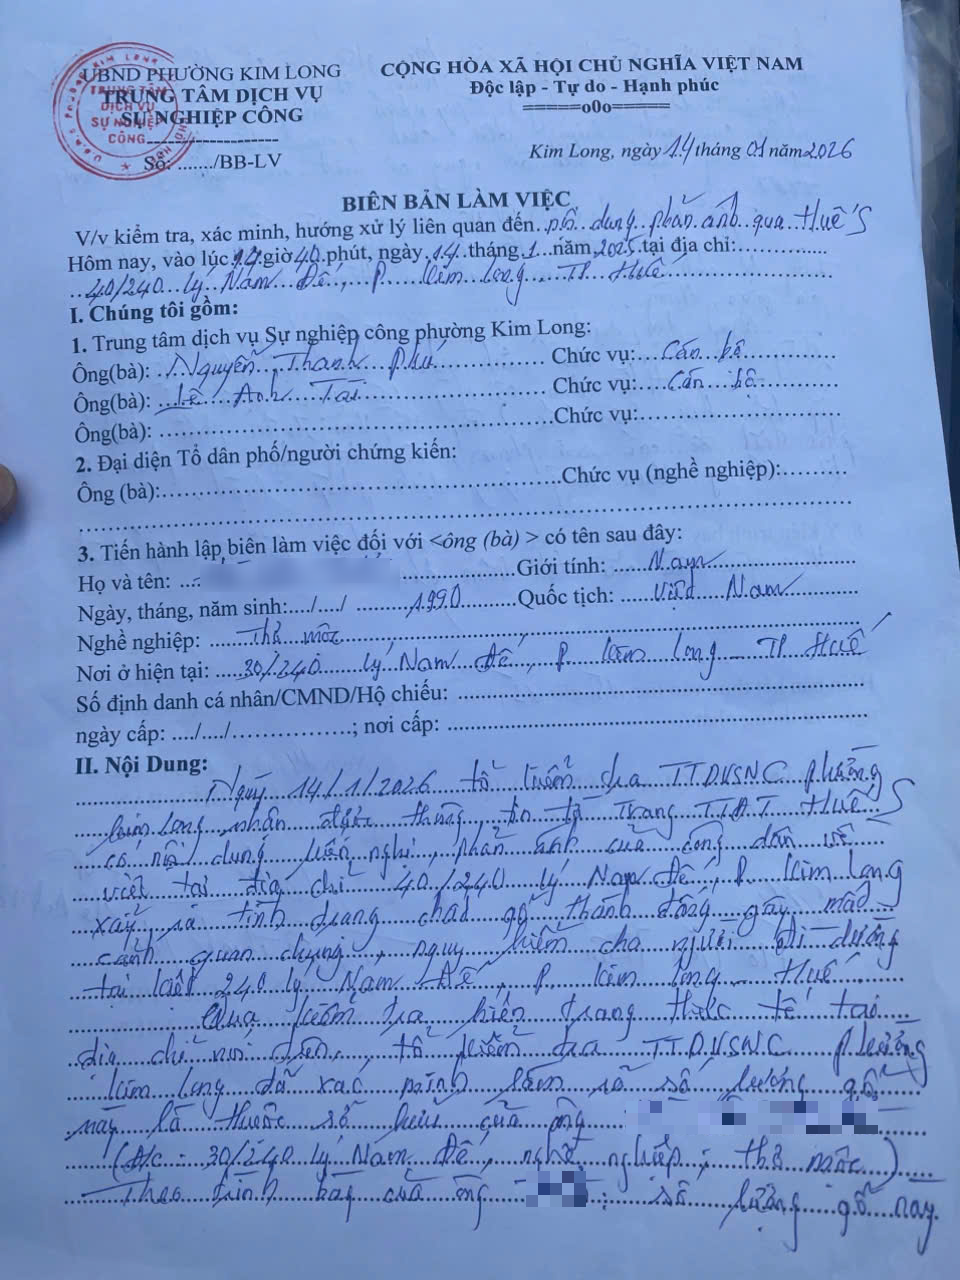 UBND PHƯỜNG KIM LONG
TRUNG TÂM DỊCH VỤ
SỰ NGHIỆP CÔNG
Số: ......./BB-LV
TRUNG TÂM
DỊCH VỤ
SỰ NGHIỆP
CÔNG
CỘNG HÒA XÃ HỘI CHỦ NGHĨA VIỆT NAM
Độc lập - Tự do - Hạnh phúc
=====o0o=====
Kim Long, ngày 14 tháng 01 năm 2026
BIÊN BẢN LÀM VIỆC
V/v kiểm tra, xác minh, hướng xử lý liên quan đến nội dung phản ánh qua Huế S
Hôm nay, vào lúc giờ 40 phút, ngày 14 tháng 1 năm 2025 tại địa chỉ:
40/240 Lý Nam Đế, P. Kim Long TP Huế
I. Chúng tôi gồm:
1. Trung tâm dịch vụ Sự nghiệp công phường Kim Long:
Ông(bà): Nguyễn Thanh Phú Chức vụ: Cán bộ
Ông(bà): Lê Anh Tài Chức vụ: Cán bộ
Ông(bà): Chức vụ:
2. Đại diện Tổ dân phố/người chứng kiến:
Ông (bà): Chức vụ (nghề nghiệp):
3. Tiến hành lập biên làm việc đối với <ông (bà) > có tên sau đây:
Họ và tên: Giới tính: Nam
Ngày, tháng, năm sinh:..../..../ 1990 Quốc tịch: Việt Nam
Nghề nghiệp: Thợ mộc
Nơi ở hiện tại: 30/240 Lý Nam Đế, P. Kim Long TP Huế
Số định danh cá nhân/CMND/Hộ chiếu:
ngày cấp: ..../..../; nơi cấp:
II. Nội Dung:
Ngày 14/1/2026 tổ kiểm tra TTDVSNC phường
Kim Long nhận được thông tin từ Trang TTĐT Huế S
có nội dung kiến nghị, phản ánh của công dân về
việc tại địa chỉ 40/240 Lý Nam Đế, P. Kim Long
xảy ra tình trạng chất gỗ thành đống gây mất
cảnh quan chung, nguy hiểm cho người đi đường
tại kiệt 240 Lý Nam Đế, P. Kim Long Huế
Qua kiểm tra hiện trạng thực tế tại
địa chỉ nói trên, tổ kiểm tra TTDVSNC phường
Kim Long đã xác minh làm rõ số lượng gỗ
này là thuộc sở hữu của ông
(Đ/c: 30/240 Lý Nam Đế, nghề nghiệp: thợ mộc)
Theo trình bày của ông : số lượng gỗ này